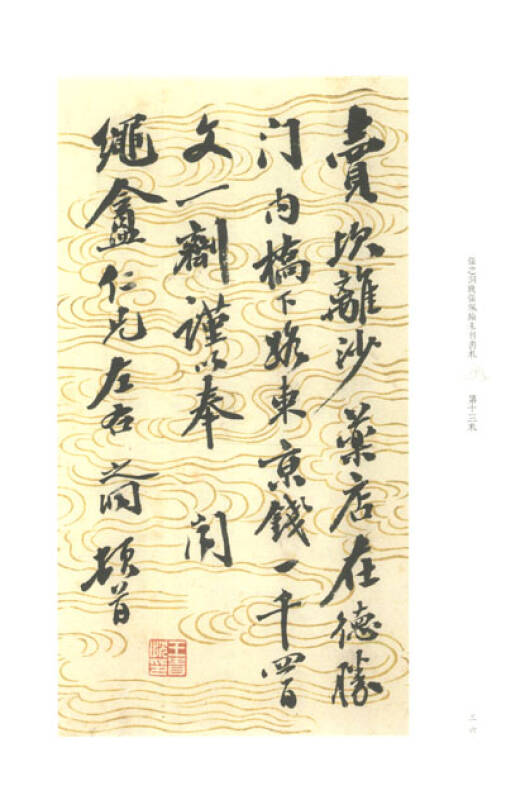 賣坎離沙藥店在德勝
门内橋下路東京錢一千四百
文一劑謹以奉闻
繩盦仁兄左右之洞頓首
張之洞致張佩綸未刊書札
第十三札
三六